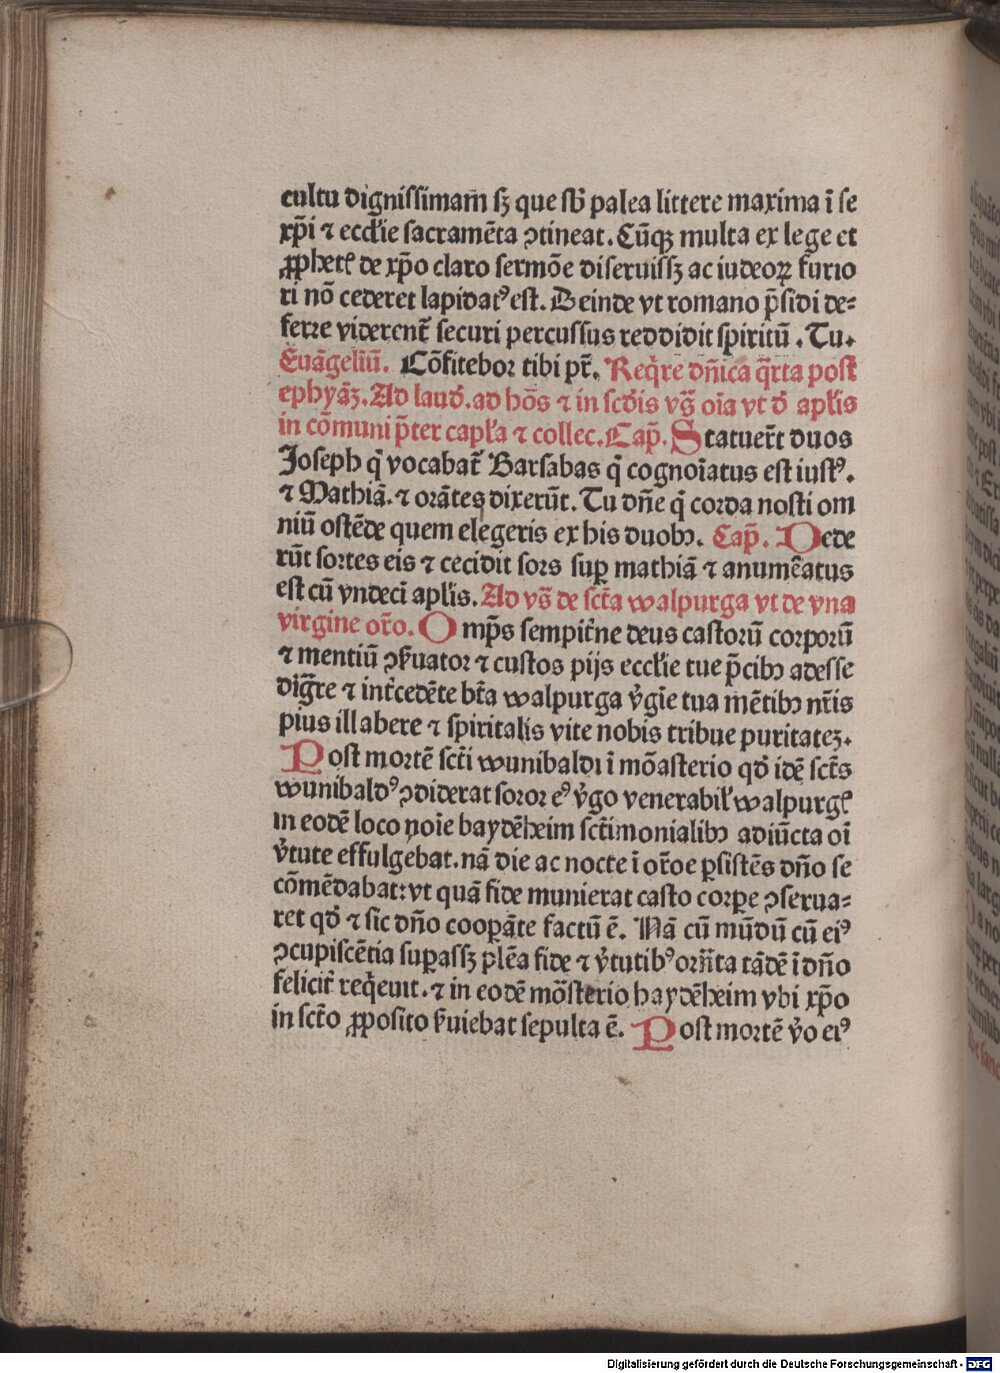 cultu dignissimam̄ sꝫ que sub̄ palea littere maxima ī se
xp̄i ⁊ eccłie sacramēta ꝯtineat. Cūqꝫ multa ex lege et
ꝓphetꝭ de xp̄o claro sermōe diseruissꝫ ac iudeoꝝ furio
ri nō cederet lapidatꝰ est. Deinde vt romano p̄sidi de⸗
ferre viderent̄ securi percussus reddidit spiritū. Tu.
Euāgeliū. Cōfitebor tibi pr̄. Reqͥre dn̄ica qͣrta post
ephyāꝫ. Ad laud̄. ad hōs ⁊ in scd̄is vs̄ oīa vt d̄ apl̄is
in cōmuni p̄ter capl̄a ⁊ collec. Cap̄. Statuer̄t duos
Joseph qͥ vocabat̄ Barsabas qͥ cognoīatus est iustꝰ.
⁊ Mathiā. ⁊ orātes dixerūt. Tu dn̄e qͥ corda nosti om
niū ostēde quem elegeris ex his duobꝫ. Cap̄. Dede
rūt sortes eis ⁊ cecidit sors sup̄ mathiā ⁊ anumēatus
est cū vndecī apl̄is. Ad vs̄ de sct̄a walpurga vt de vna
virgine or̄o. Omp̄s sempit̄ne deus castorū corporū
⁊ mentiū ꝯẜuator ⁊ custos pijs eccłie tue p̄cibꝫ adesse
dig̅re ⁊ int̄cedēte bt̄a walpurga v̄gīe tua mētibꝫ nr̄is
pius illabere ⁊ spiritalis vite nobis tribue puritateꝫ.
Post mortē sct̄i wunibaldi ī mōasterio qd̄ idē sct̄s
wunibaldꝰ ꝯdiderat soror eꝰ v̄go venerabil̄ walpurgꝭ
in eodē loco noīe haydēheim sct̄imonialibꝫ adiūcta oī
v̄tute effulgebat. nā die ac nocte ī or̄oe ꝑsistēs dn̄o se
cōmēdabat: vt quā fide munierat casto corꝑe ꝯserua⸗
ret qd̄ ⁊ sic dn̄o cooꝑāte factū ē. Nā cū mūdū cū eiꝰ
ꝯcupiscētia suꝑassꝫ plēa fide ⁊ v̄tutibꝰ orn̄ta tādē ī dn̄o
felicit̄ reqͥeuit. ⁊ in eodē mōsterio haydēheim vbi xp̄o
in sct̄o ꝓposito ẜuiebat sepulta ē. Post mortē v̄o eiꝰ
Digitalisierung gefördert durch die Deutsche Forschungsgemeinschaft - DFG